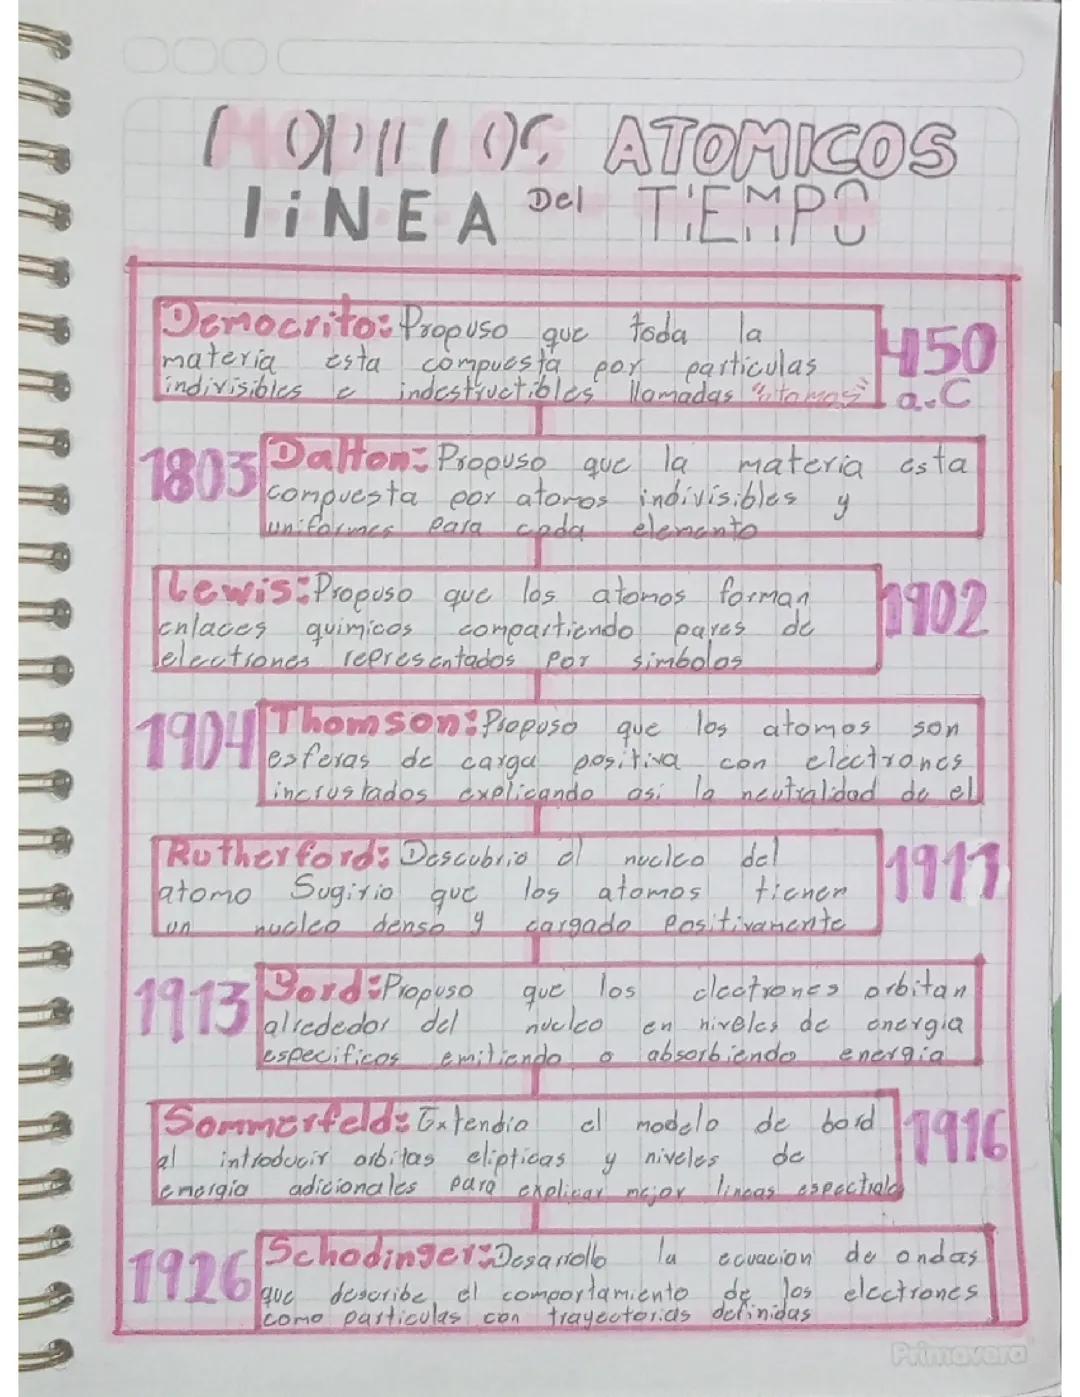 MODELOS ATOMICOS
LiNEA Del TIEMPO
Democrito: Propuso que toda la
materia esta compuesta por particulas
indivisibles e indestructibles llamadas "atomos"
450
a.C
1803
Dalton: Propuso que la materia esta
compuesta por atomos indivisibles y
uniformes para cada elemento
Lewis: Propuso que los atomos forman
enlaces quimicos compartiendo pares de
electrones representados por simbolos
1902
1904
Thomson: Propuso que los atomos son
esferas de carga positiva con electrones
incrustados explicando asi la neutralidad de el
Rutherford: Descubrio el nucleo del
atomo Sugirio que los atomos tienen
un nucleo denso y cargado positivamente
1911
1913
Bord: Propuso que los electrones orbitan
alrededor del nucleo en niveles de energia
especificos emitiendo o absorbiendo energia
Sommerfeld: Extendio el modelo de bord
al introducir orbitas elipticas y niveles de
energia adicionales para explicar mejor lineas espectrale
1916
1926
Schodinger: Desarrollo la ecuacion de ondas
que describe el comportamiento de los electrones
como particulas con trayectorias definidas
Primavera